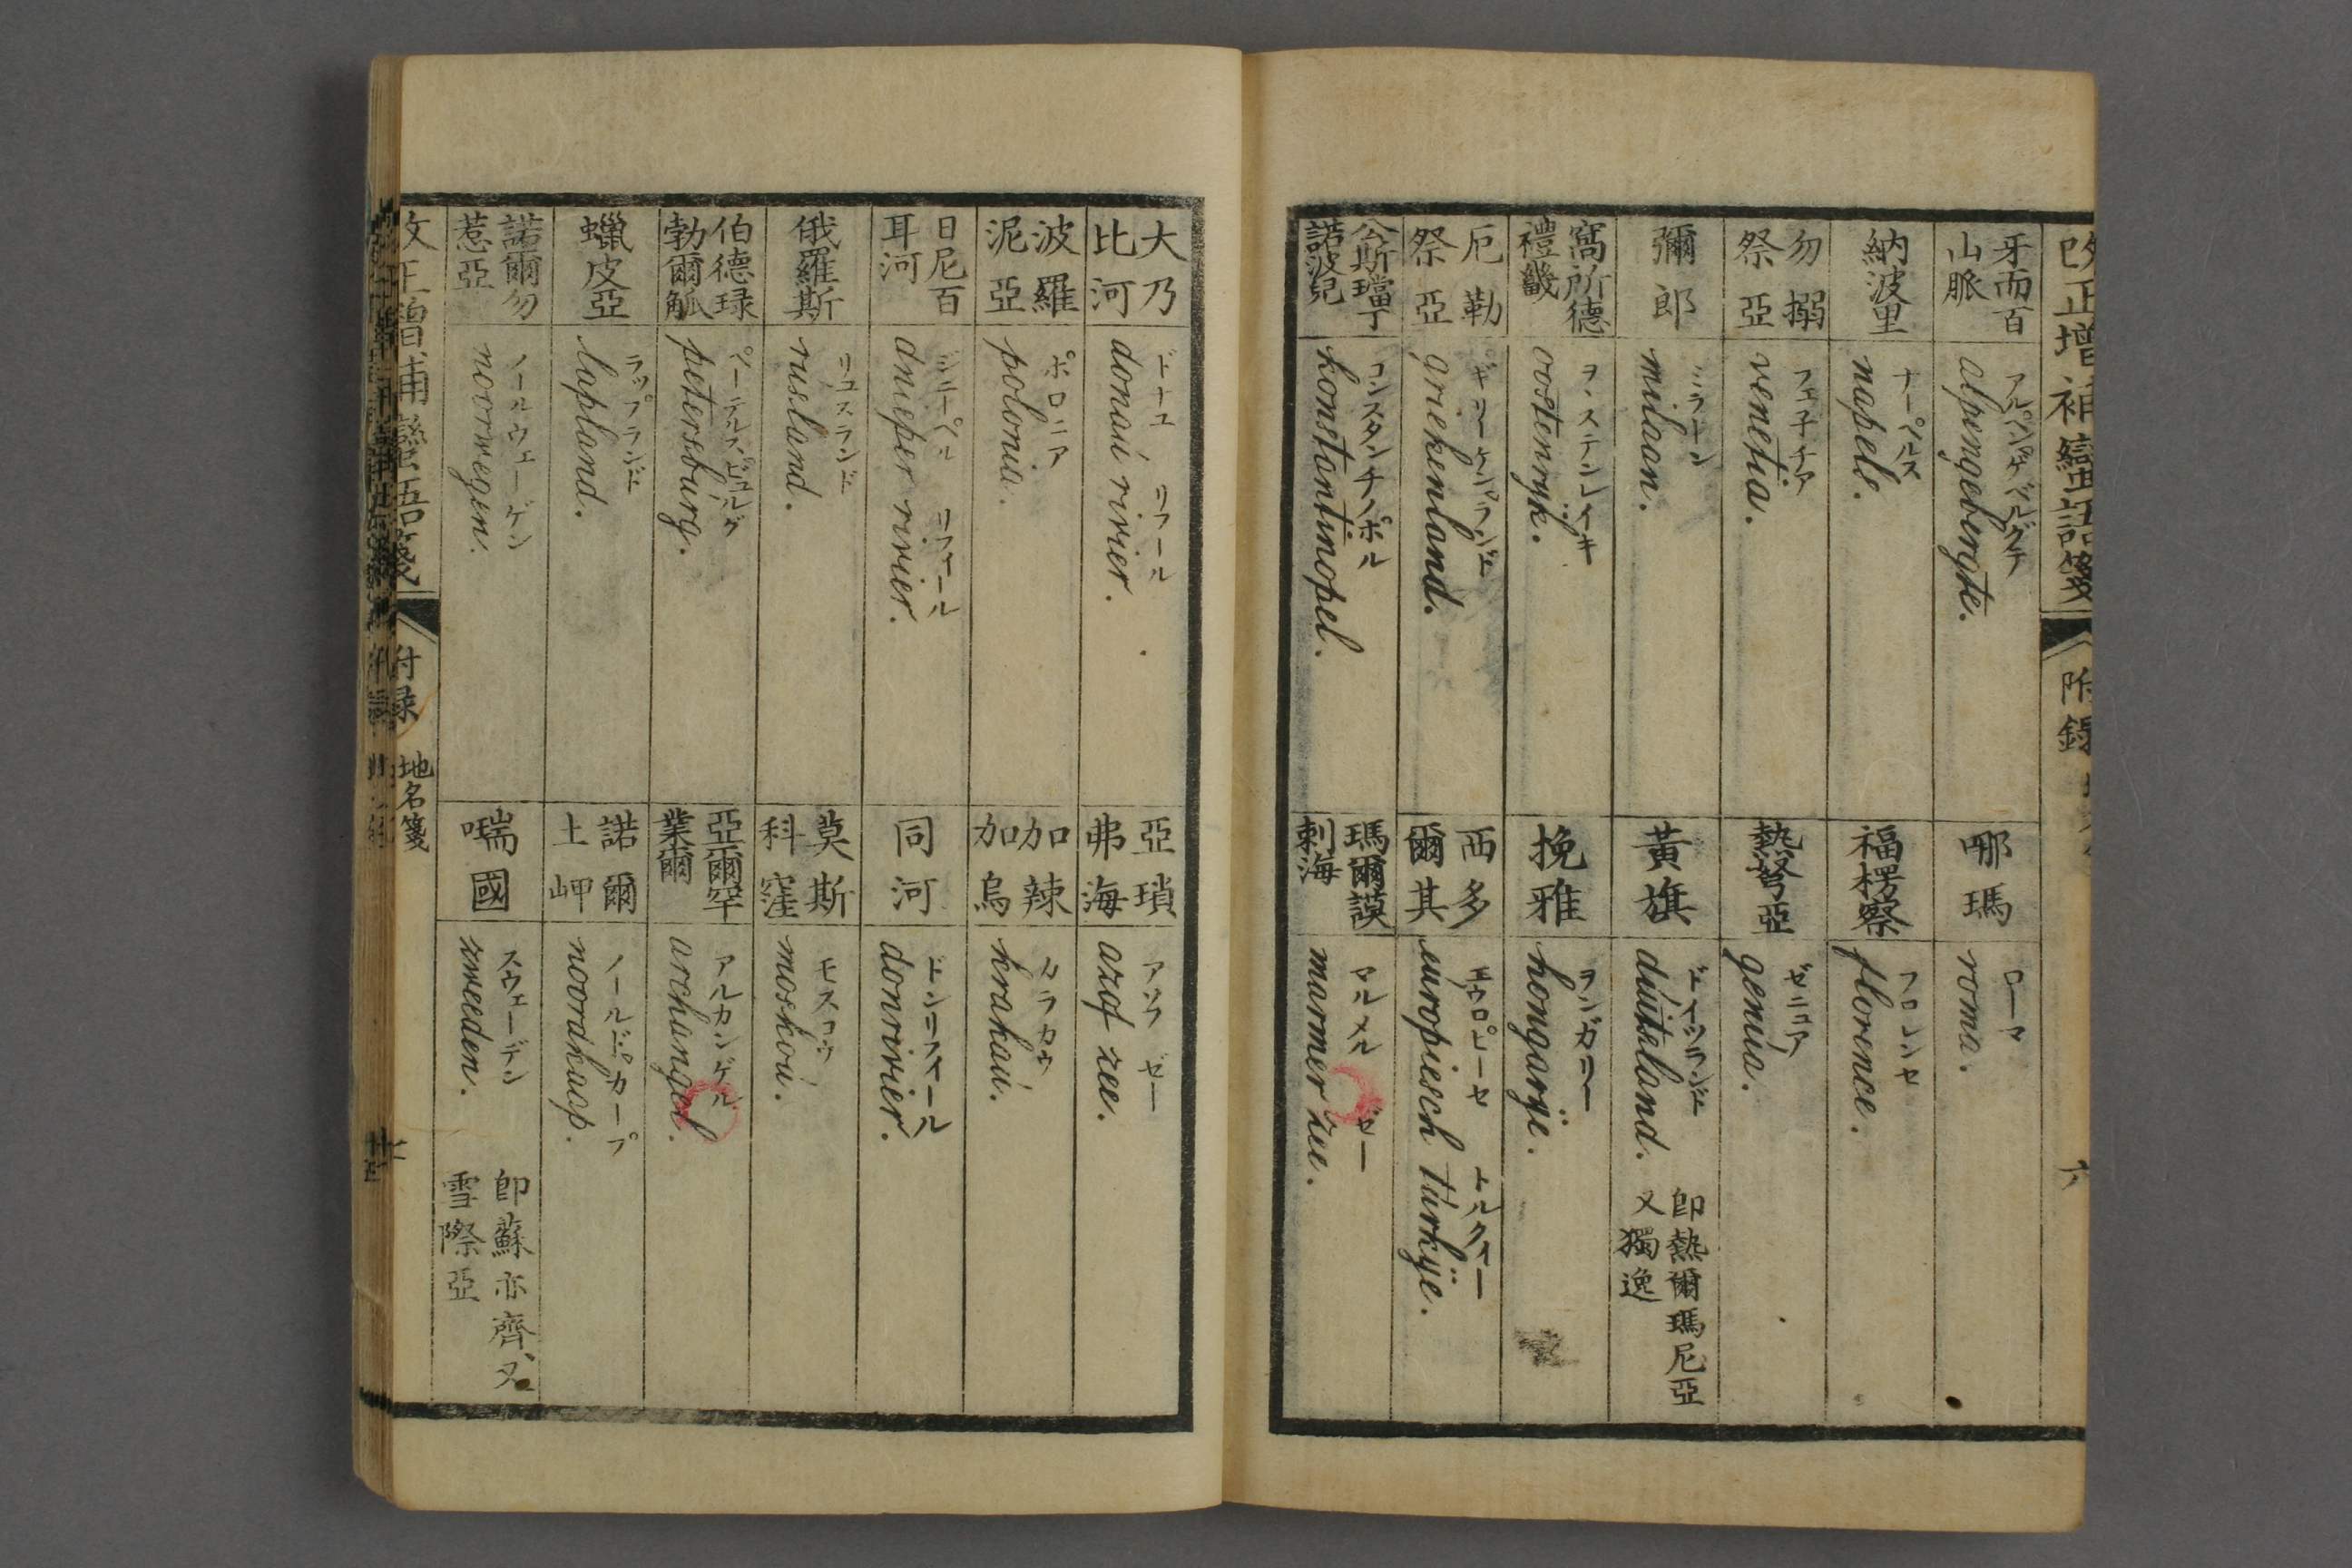 改正增補蠻語箋
附錄
六
牙而百
山脈
アルペンゲベルグテ
alpengebergte.
哪瑪
ローマ
roma.
納波里
ナーペルス
napels.
福楞察
フロレンセ
florence.
勿搦
祭亞
フェ子チア
venetia.
熱弩亞
ゼニュア
genua.
彌郎
ミラーン
milaan.
黃旗
ドイツランド
duitsland.
卽熱爾瑪尼亞
又獨逸
窩所德
禮畿
ヲヽステンレイキ
oostenryk.
挽雅
ヲンガリー
hongarije.
厄勒
祭亞
ギリーケンランド
griekenland.
西多
爾其
エウロピーセ トルクイー
europiesch turkije.
公斯璫丁
諾波兒
コンスタンチノポル
konstantinopel.
瑪爾謨
剌海
マルメル ゼー
marmer zee.
大乃
比河
ドナユ リフール
donau rivier.
亞瑣
弗海
アゾフ ゼー
azof zee.
波羅
泥亞
ポロニア
polonia.
加辣
加烏
カラカウ
krakau.
日尼百
耳河
ジニーペル リフィール
dnieper rivier.
同河
ドンリフィール
donrivier.
俄羅斯
リュスランド
rusland.
莫斯
科窪
モスコウ
moskou.
伯德琭
勃爾觚
ペーテルスビュルグ
petersburg.
亞爾罕
業爾
アルカンゲル
archangel.
蠟皮亞
ラップランド
lapland.
諾爾
土岬
ノールドカープ
noordkaap.
諾爾勿
惹亞
ノールウェーゲン
noorwegen.
喘國
スウェーデン
zweeden.
卽蘇亦齊又
雪際亞
改正增補蠻語箋
付录
地名箋